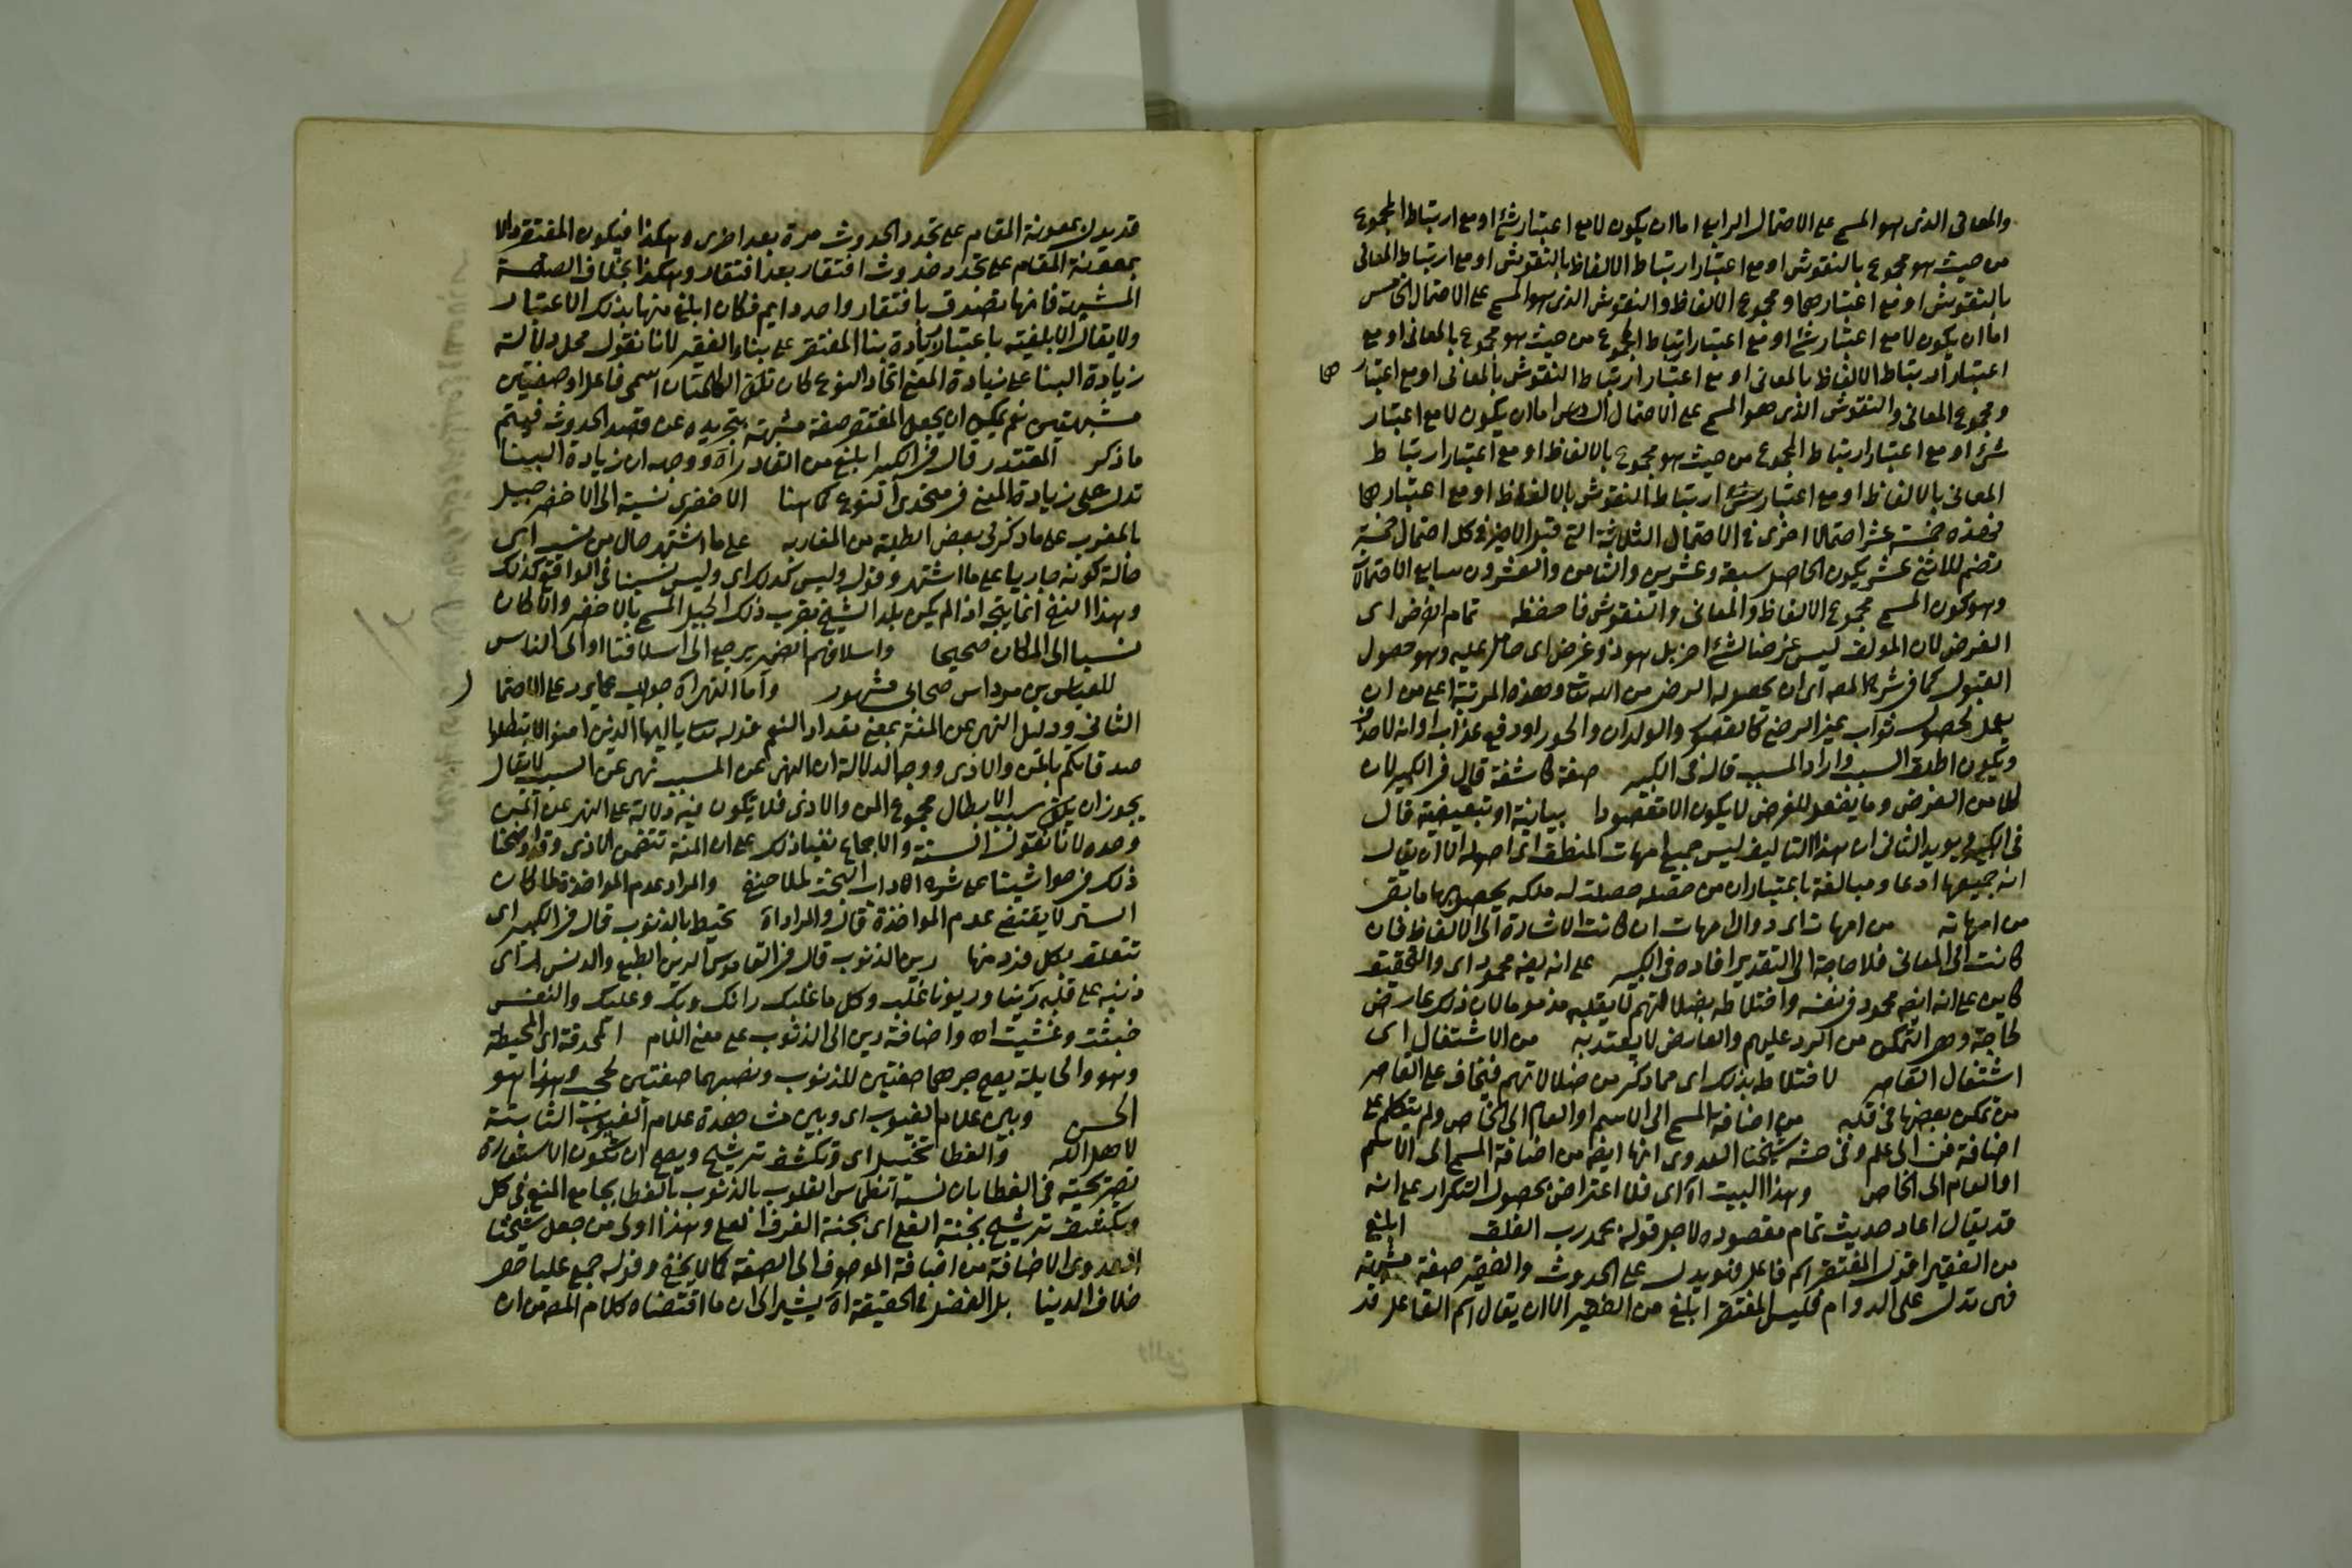 والمعانى الذى هو المسمى على الاحتمال الرابع اما ان يكون لا مع اعتبار شئ او مع ارتباط المجموع
من حيث هو مجموع بالنقوش او مع اعتبار ارتباط الالفاظ بالنقوش او مع ارتباط المعانى
بالنقوش او مع اعتبارهما ومجموع الالفاظ والنقوش الذى هو المسمى على الاحتمال الخامس
اما ان يكون لا مع اعتبار شئ او مع اعتبار ارتباط المجموع من حيث هو مجموع بالمعانى او مع
اعتبار ارتباط الالفاظ بالمعانى او مع اعتبار ارتباط النقوش بالمعانى او مع اعتبار هما
ومجموع المعانى والنقوش الذى هو المسمى على الاحتمال السادس اما ان يكون لا مع اعتبار
شئ او مع اعتبار ارتباط المجموع من حيث هو مجموع بالالفاظ او مع اعتبار ارتباط
المعانى بالالفاظ او مع اعتبار ارتباط النقوش بالالفاظ او مع اعتبارهما
فهذه خمسة عشر احتمالا اخرى فى الاحتمال الثلاثة التى قبل الاخير فى كل احتمال خمسة
تضم للاثنى عشر يكون الحاصل سبعة وعشرين والثامن والعشرون سابع الاحتمالات
وهو كون المسمى مجموع الالفاظ والمعانى والنقوش فاحفظه تمام الغرض اى
الغرض لان المولف ليس غرضا لشئ اخر بل هو ذو غرض اى حامل عليه وهو حصول
القبول كما فى شرح المصـ اى ان يحصوله الرضى من الله تعا وهذه المرتبة اعلى من ان
يعمل لحصول ثواب غير الرضى كالقصور والولدان والحور او دفع عذاب او انه لاحذف
ويكون اطلق السبب واراد المسبب قاله فى الكبير صفة كاشفة قال فى الكبير لان
كلا من الغرض وما يفعل للغرض لا يكون الا مقصودا بيانية او تبعيضية قال
فى الكبير ويويد الثانى ان هذا التاليف ليس جميع امهات المنطق اى اصوله الا ان يقال
انه جميعها ادعا ومبالغة باعتبار ان من حصله حصلت له ملكه يحصل بها ما بقى
من امهاته من امهات اى دوال امهات ان كانت الاشارة الى الالفاظ فان
كانت الى المعانى فلا حاجة الى التقدير افاده فى الكبير على انه ايضه محمود اى والتحقيق
كاين على انه ايضه محمود فى نفسه واختلاطه بضلالاتهم لا يقلبه مذموما لان ذلك عارض
لحاجة وهى التمكن من الرد عليهم والعارض لا يعتد به من الاشتغال اى
اشتغال القاصر لاختلاطه بذلك اى مما ذكر من ضلالاتهم فيخاف على القاصر
من تمكن بعضها فى قلبه من اضافة المسمى الى الاسم او العام الى الخاص ولم يتكلم على
اضافة فن الى علم وفى حشـ شيخنا العدوى انها ايضه من اضافة المسمى الى الاسم
او العام الى الخاص وهذا البيت اه اى فلا اعتراض بحصول التكرار على انه
قد يقال اعاد حديث تمام مقصوده لاجل قوله بحمد رب الفلق ابلغ
من الفقير اقول المفتقر اسم فاعل فهو يدل على الحدوث والفقير صفة مشبهة
فهى تدل على الدوام فليس المفتقر ابلغ من الفقير الا ان يقال اسم الفاعل قد
قد يدل بمعونة المقام على تجدد الحدوث مرة بعد اخرى وهكذا فيكون المفتقر دالا
بمعونة المقام على تجدد حدوث افتقار بعد افتقار وهكذا بخلاف الصفة
المشبهة فانها تصدق بافتقار واحد دايم فكان ابلغ منها بذلك الاعتبار
ولا يقال الابلغية باعتبار زيادة بنا المفتقر على بناء الفقير لانا نقول محل دلالة
زيادة البنا على زيادة المعنى اتحاد النوع كان تكون الكلمتان اسمى فاعل او صفتين
مشبهتين نعم يمكن ان يجعل المفتقر صفة مشبهة بتجريده عن قصد الحدوث فيتم
ما ذكر المقتدر قال فى الكبير ابلغ من القادر اه ووجهه ان زيادة البينا
تدل على زيادة المعنى فى متحدى النوع كما هنا الاخضرى نسبة الى الاخضر جبل
بالمغرب على ما ذكر لى بعض الطلبة من المغاربه على ما اشتهر حال من نسب اى
حالة كونه جاريا على ما اشتهر وقوله وليس كذلك اى وليس نسبنا فى الواقع كذلك
وهذا النفى انما يتجه اذا لم يكن بلد الشيخ بقرب ذلك الجبل المسمى بالاخضر والا لكان
نسبا الى المكان صحيحا واسلافهم الضمير يرجع الى اسلافنا او الى الناس
للعباس بن مرداس صحابى مشهور واما النهر اه جواب عما يرد على الاحتمال
الثانى ودليل النهى عن المنة بمعنى تعداد النعم قوله تعا يا ايها الذين امنوا لا تبطلوا
صدقاتكم بالمن والاذى ووجه الدلالة ان النهى عن المسبب نهى عن السبب لا يقال
يجوز ان يكون سبب الابطال مجموع المن والاذى فلا يكون فيه دلالة على النهى عن المن
وحده لانا نقول السنة والاجماع نفيا ذلك على ان المنة تتضمن الاذى وقد اوضحنا
ذلك فى حواشينا على شرح اداب البحث لملا حنفى والمراد عدم المواخذة لما كان
الستر لا يقتضى عدم المواخذة قال والمراد اه تحيط بالذنوب قال فى الكبير اى
تتعلق بكل فرد منها رين الذنوب قال فى القاموس الرين الطبع والدنس ران اى
ذنبه على قلبه رينا وريونا غلب وكل ما غلبك رانك وبك وعليك والنفس
خبثت وغشيت اه واضافة رين الى الذنوب على معنى اللام المحدقة اى المحيطة
وهو والحايلة يصح جرهما صفتين للذنوب ونصبهما صفتين لحجب وهذا هو
الحسن وبين علام الغيوب اى وبين مشاهدة علام الغيوب الثابتة
لاهل الله والغطا تخييل اى وتكشف ترشيح ويصح ان تكون الاستعارة
تصريحية فى الغطا بان شبه القلوب بالذنوب بالغطا بجامع المنع فى كل
وتكشف ترشيح بجنة العلى اى بجنة الغرف العلى وهذا اولى من جعل شيخنا
العدوى الاضافة من اضافة الموصوف الى الصفة كما لا يخفى وقوله جمع عليا ضد
خلاف الدنيا بل الفضل فى الحقيقة اه يشير الى ان ما اقتضاه كلام المصـ من ان